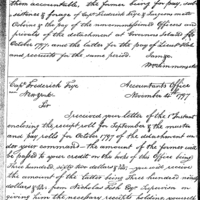 them accountable, the former being for pay, sub-
sistence & forage of Capt Frederick Frye & Surgeons mate
Osborne & the pay of the noncommissioned Officers and
privates of the detachment at Governors Island for
October 1797, and the latter for the pay of Lieut
and recruits for the same period.
I am &c
Wm Simmons
Capt Frederick Frye
New york
Sir
Accountants Office
November 2d 1797
I received your letter of the 1st Instant
enclosing the receipt roll for September & the muster
and pay rolls for October 1797 of the detachment un-
der your command— the amount of the former will
be passed to your credit on the books of this Office being
three hundred, sixty nine dollars &
the amount of the latter being three hundred ninety
dollars & from Nicholas Fish Esqr Supervisor on
giving him the necessary receipts holding yourself